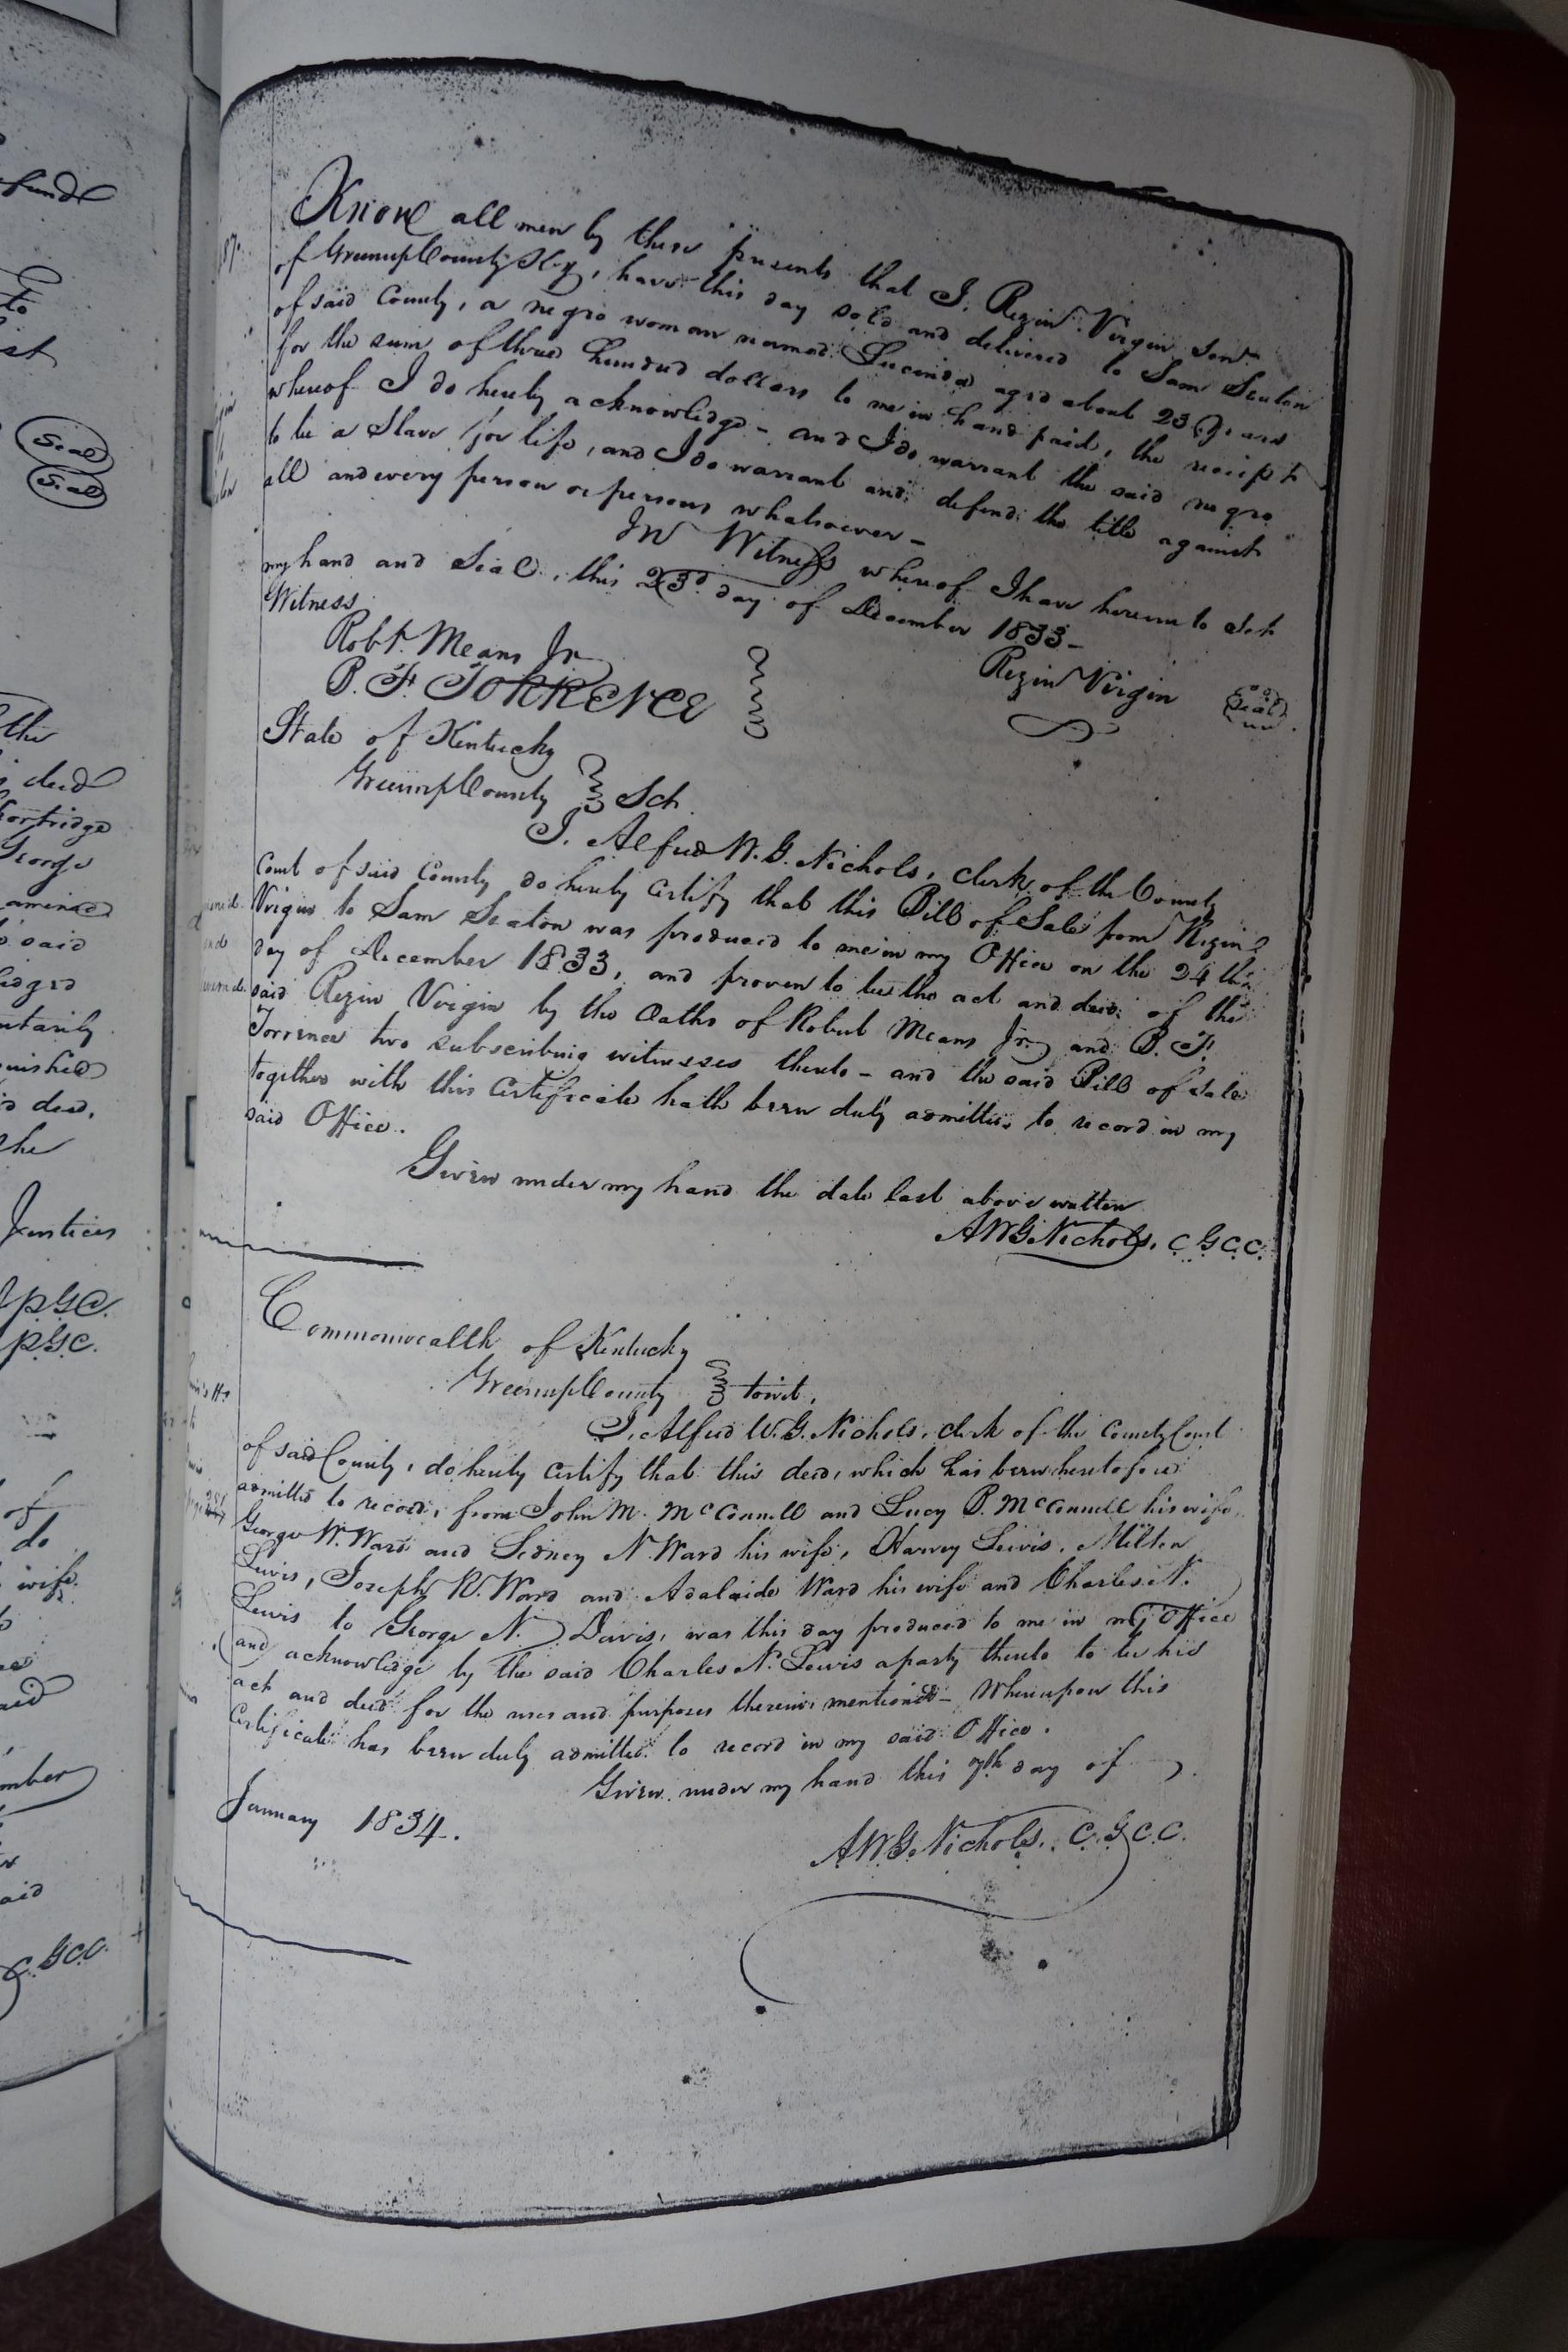 Know all men by these presents that I, Rezin Virgin Senr
of Greenup County Ky, have this day sold and delivered to Sam Seaton
of said County, a negro woman named Lucinda aged about 23 years
for the sum of three hundred dollars to me in hand paid, the receipt
whereof I do hereby acknowledge - and I do warrant the said negro
to be a Slave for life, and I do warrant and defend the title against
all and every person or persons whatsoever -
In Witness whereof I have hereunto set
my hand and Seal, this 23d day of December 1833 -
Witness
Robt. Means Jr
B. F. Torrence
Rezin Virgin
Seal
State of Kentucky
Greenup County Sct.
I, Alfred W. G. Nichols, clerk of the County
Court of said County do hereby certify that this Bill of Sale from Rezin
Virgin to Sam Seaton was produced to me in my Office on the 24th
day of December 1833, and proven to be the act and deed of the
said Rezin Virgin by the Oaths of Robert Means Jr. and B. F.
Torrence two subscribing witnesses thereto - and the said Bill of Sale
together with this Certificate hath been duly admitted to record in my
said Office.
Given under my hand the date last above written
AWG Nichols, C.G.C.C.
Commonwealth of Kentucky
Greenup County towit,
I, Alfred W. G. Nichols, clerk of the County Court
of said County, do hereby certify that this deed, which has been heretofore
admitted to record, from John M. McConnell and Lucy P. McConnell his wife,
George W. Ward and Sidney N. Ward his wife, Harvey Lewis, Milton
Lewis, Joseph R. Ward and Adalaide Ward his wife and Charles N.
Lewis to George N. Davis, was this day produced to me in my Office
and acknowledge by the said Charles N. Lewis a party thereto to be his
act and deed for the uses and purposes therein mentioned - Whereupon this
Certificate has been duly admitted to record in my said Office.
Given under my hand this 7th day of
January 1834.
AWG. Nichols. C.G.C.C.